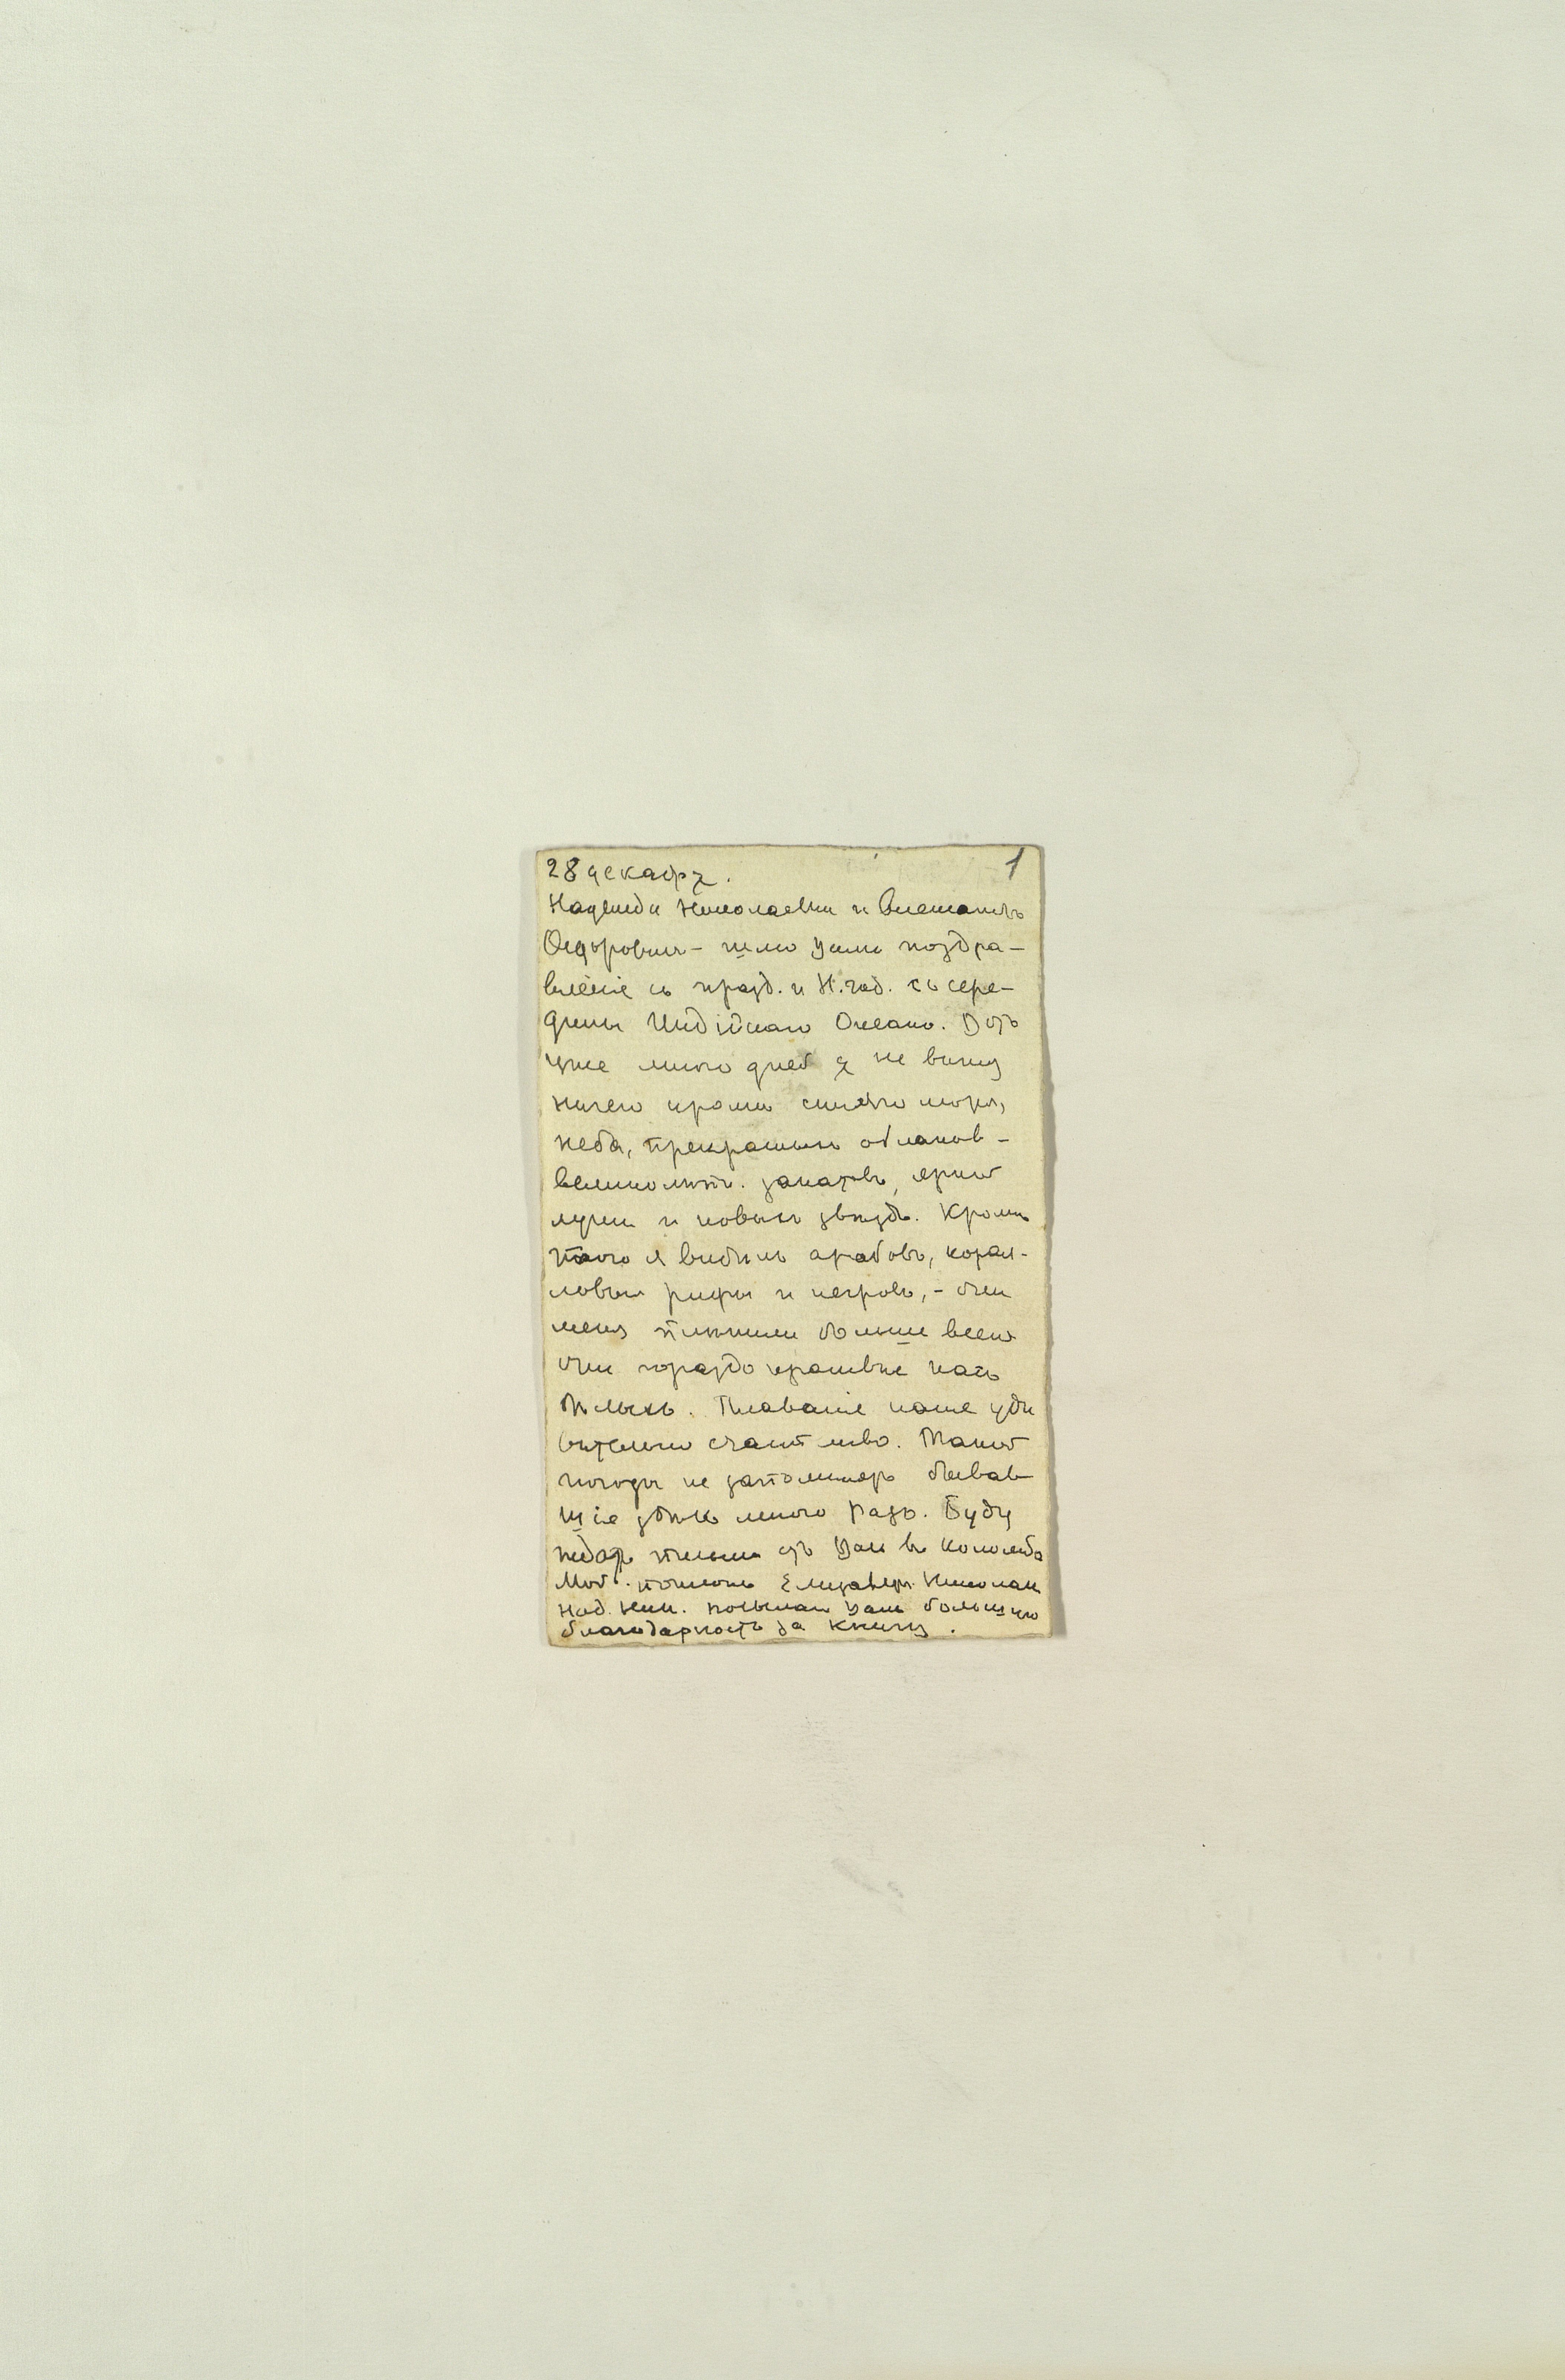 28 декабря. 1
Надежда Николаевна и Александръ
Федоровичъ – шлю Вамъ поздра-
вленіе съ празд. и Н. год. съ сере-
дины Индійскаго Океана. Вотъ
уже много дней я не вижу
ничего кромѣ синяго моря,
неба, прекрасныхъ облаковъ –
великолѣпн. закатовъ, яркой
луны и новыхъ звѣздъ. Кромѣ
того я видѣлъ арабовъ, корал-
ловые рифы и негровъ, – они
меня плѣнили больше всего
они гораздо красивѣе насъ
бѣлыхъ. Плаваніе наше уди
вительно счастливо. Такой
погоды не запомнятъ бывав-
шіе здѣсь много разъ. Буду
ждать письма отъ Вас въ Коломбо
Мой поклонъ Елизавет. Николаев
Над. Ник. посылаю Вамъ большую
благодарность за книгу.